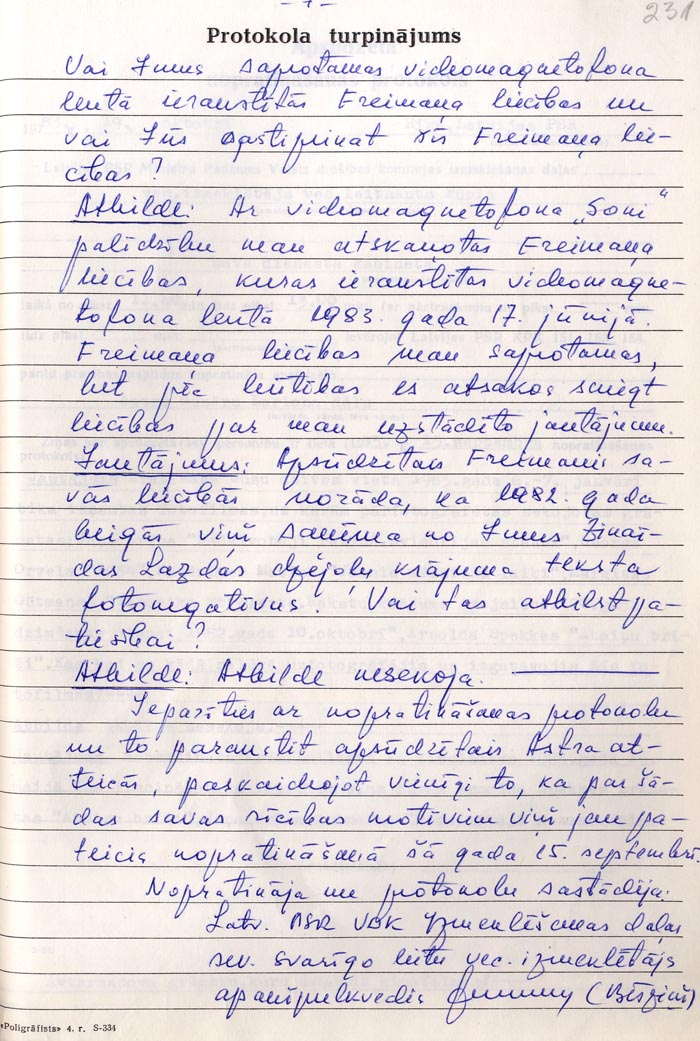 - 7 -
231
Protokola turpinājums
Vai Jums saprotamas videomagnetofona
lentā ierakstītās Freimaņa liecības un
vai Jūs apstiprinat šīs Freimaņa lie-
cības?
Atbilde: Ar videomagnetofona "Soni"
palīdzību man atskaņotas Freimaņa
liecības, kuras ierakstītas videomagne-
tofona lentā 1983. gada 17. jūnijā.
Freimaņa liecības man saprotamas,
bet pēc būtības es atsakos sniegt
liecības par man uzstādīto jautājumu.
Jautājums: Apsūdzētais Freimanis sa-
vās liecībās norāda, ka 1982. gada
beigās viņš saņēma no Jums Zinaī-
das Lazdas dzejoļu krājuma teksta
fotonegatīvus. Vai tas atbilst pa-
tiesībai?
Atbilde: Atbilde nesekoja.
Iepazīties ar nopratināšanas protokolu
un to parakstīt apsūdzētais Astra at-
teicās paskaidrojot vienīgi to, ka par šā-
das savas rīcības motīviem viņš jau pa-
teicis nopratināšanā šā gada 15. septembrī.
Nopratināja un protokolu sastādīja:
Latv. PSR VDK Izmeklēšanas daļas
sev. svarīgo lietu vec. izmeklētājs
apakšpulkvedis (Bērziņš)
«Poligrāfists» 4. r. S-334